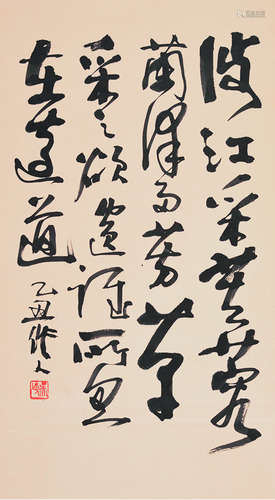 涉江采芙蓉
蘭澤多芳草
采之欲遺誰所思
在遠道
乙丑